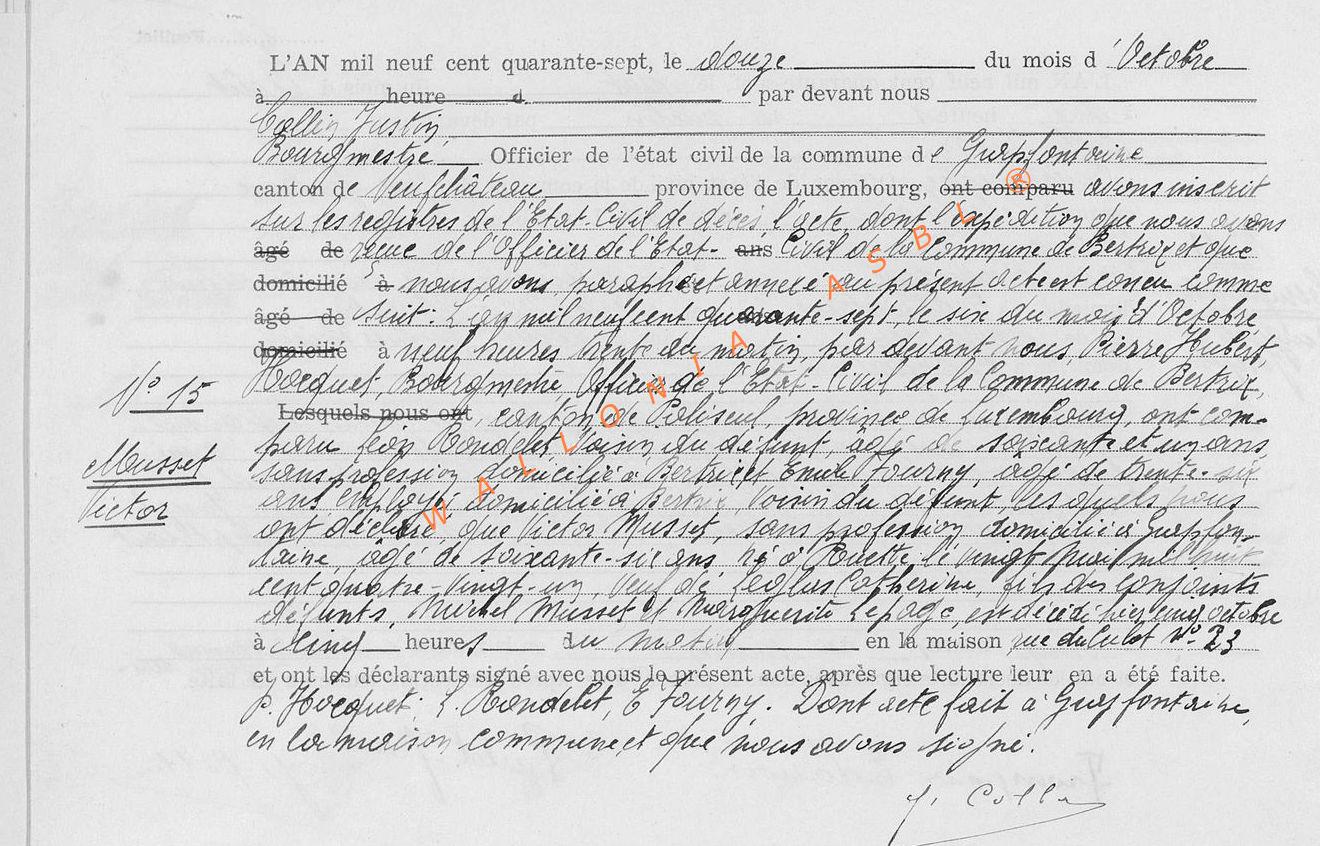 L'AN mil neuf cent quarante-sept, le douze du mois d'Octobre
à heure d par devant nous
Collin Justin,
Bourgmestre Officier de l'état civil de la commune de Grapfontaine
canton de Neufchâteau province de Luxembourg, ont comparu avons inscrit
sur les registres de l'Etat-Civil de décès, l'acte, dont l'expédition que nous avons
âgé de reçue de l'Officier de l'Etat- ans Civil de la Commune de Bertrix et que
domicilié à nous avons, paraphé et annexé au présent acte est conçu comme
âgé de suit: L'an mil neuf cent quarante-sept, le six du mois d'Octobre,
domicilié à neuf heures trente du matin, par devant nous Pierre Hubert,
Hocquet, Bourgmestre Officier de l'Etat-Civil de la Commune de Bertrix,
N° 15
Lesquels nous ont, canton de Paliseul, province de Luxembourg, ont com-
paru Léon Rondelet, voisin du défunt, âgé de soixante et un ans,
Musset
sans profession domicilié à Bertrix et Emile Fourny, âgé de trente-six
Victor
ans, employé domicilié à Bertrix, voisin du défunt, lesquels nous
ont déclaré, que Victor Musset, sans profession domicilié à Grapfon-
taine, âgé de soixante-six ans né à le vingt mai mil huit
cent quatre-vingt-un, veuf de Catherine, fils des conjoints
défunts, Michel Musset et Marguerite Lepage, est décédé hier cinq octobre
à cinq heures du matin en la maison rue du Culot N° 23
et ont les déclarants signé avec nous le présent acte, après que lecture leur en a été faite.
P. Hocquet; L. Rondelet, E Fourny. Dont acte fait à Grapfontaine,
en la maison commune et que nous avons signé.
J. Collin
WALLONIA ASBL ®